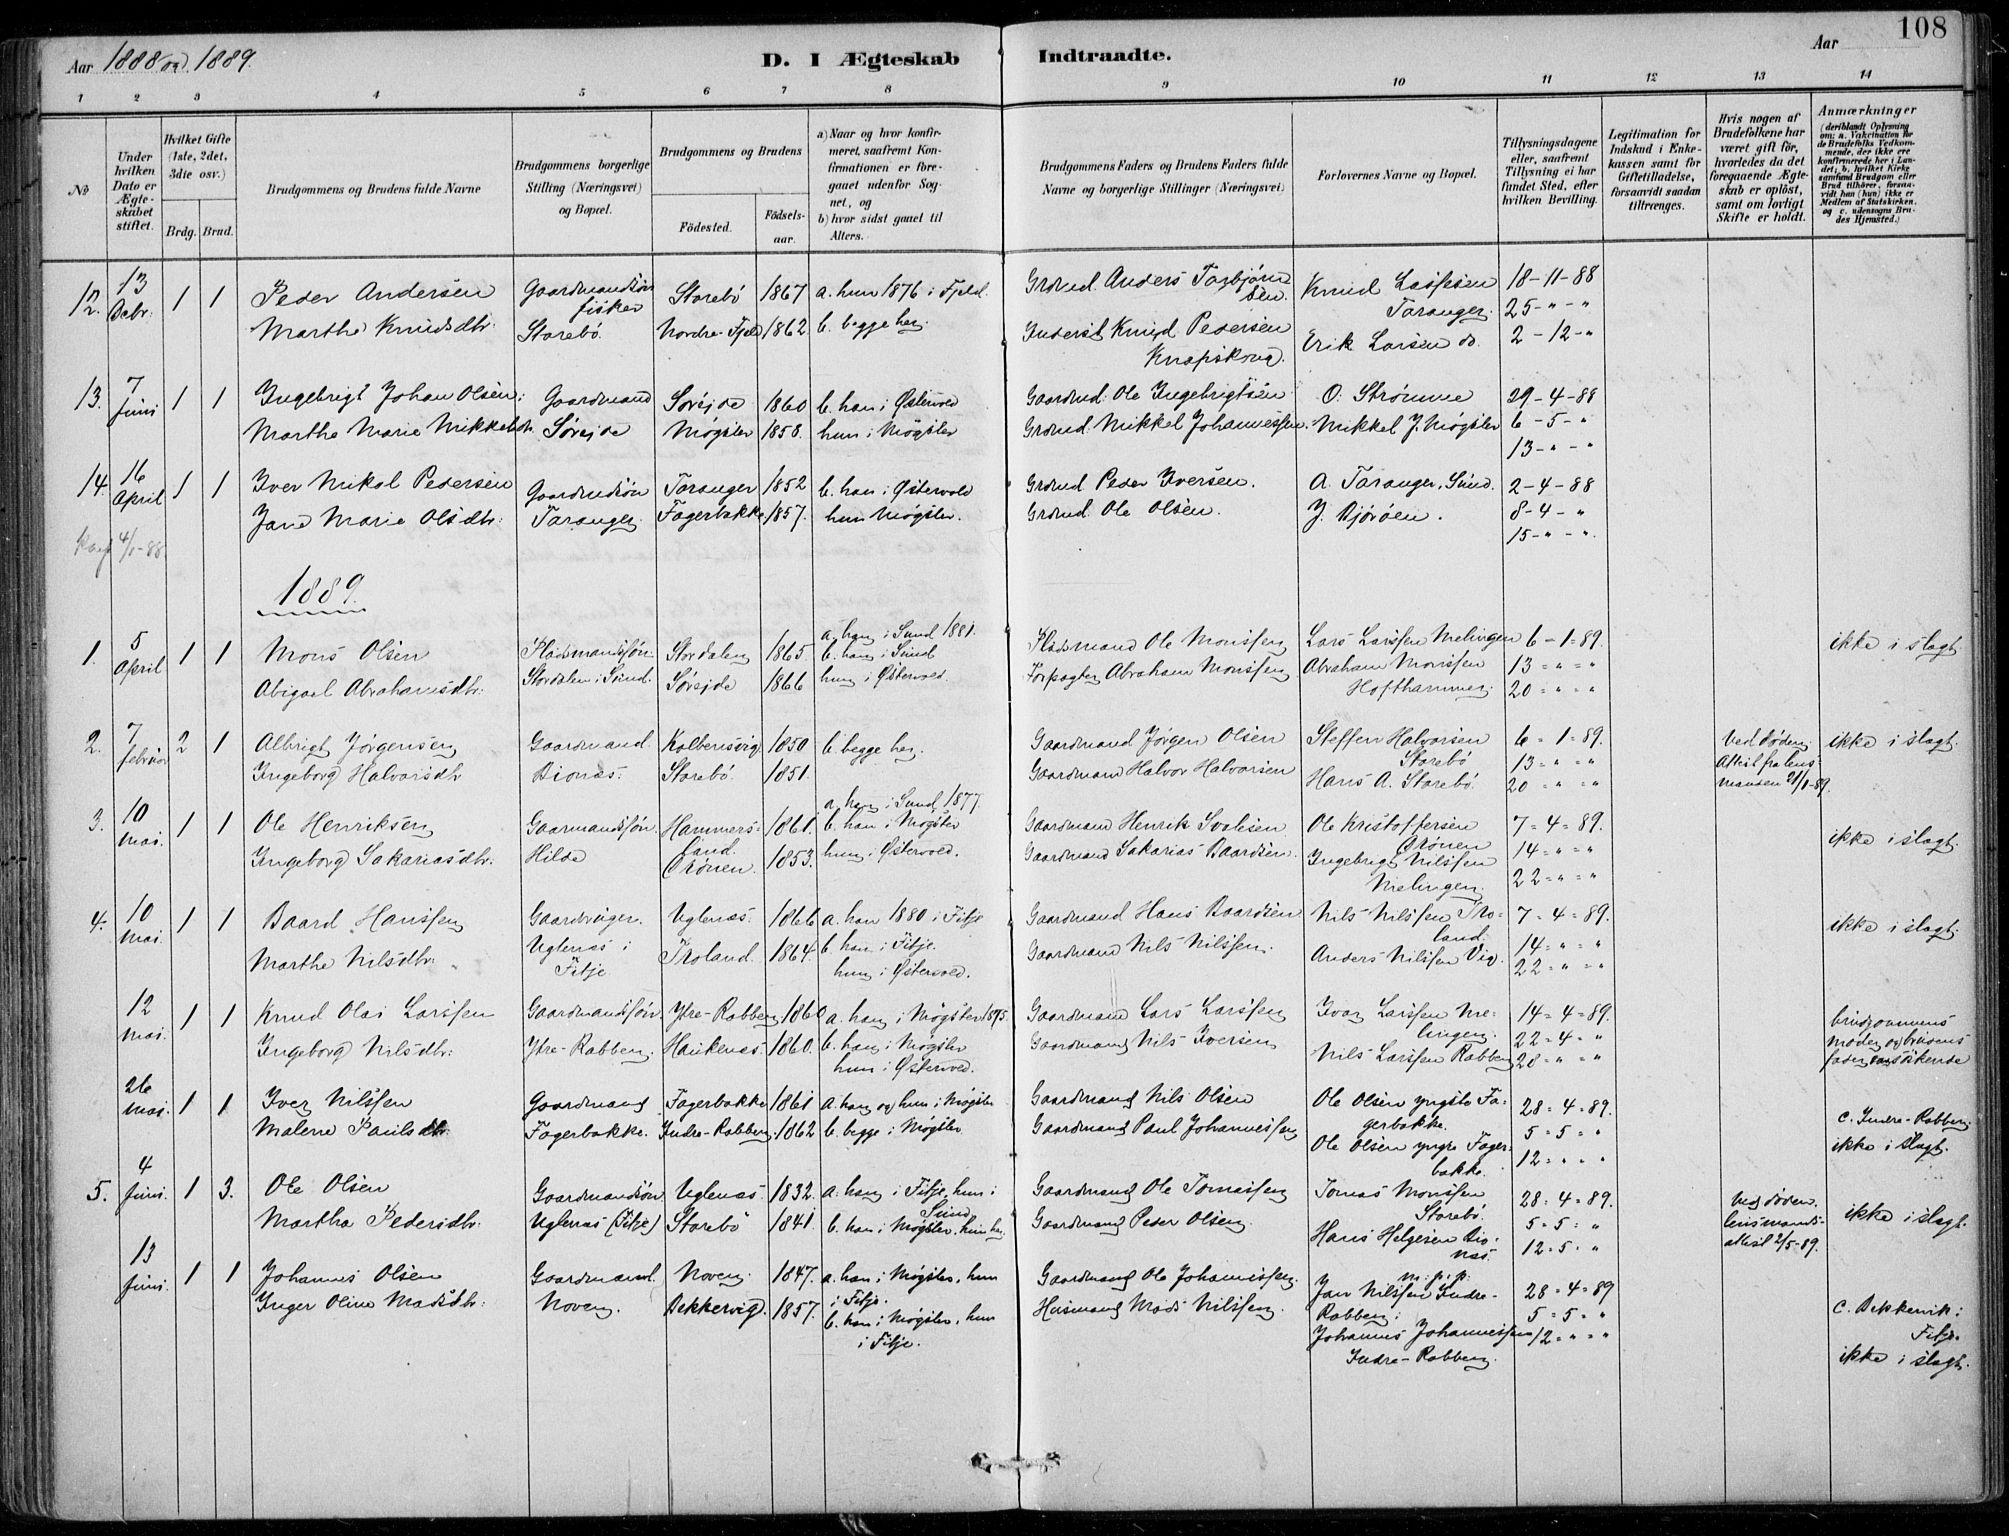 108
Aar 1888 og 1889.
D. I Ægteskab Indtraadte.
Aar
1 2 3 4 5 6 7 8 9 10 11 12 13 14
No
Under hvilken Dato er Ægteskabet stiftet.
Hvilket Gifte (1ste, 2det, 3die osv.)
Brdg. Brud.
Brudgommens og Brudens fulde Navne
Brudgommens borgerlige Stilling (Næringsvei) og Bopæl.
Brudgommens og Brudens
Födested.
Födsels-aar.
a) Naar og hvor konfirmeret, saafremt Konfirmationen er foregaaet udenfor Sognet, og
b) hvor sidst gaaet til Alters.
Brudgommens Faders og Brudens Faders fulde Navne og borgerlige Stillinger (Næringsvei)
Forlovernes Navne og Bopæl.
Tillysningsdagene eller, saafremt Tillysning ei har fundet Sted, efter hvilken Bevilling.
Legitimation for Indskud i Enkekassen samt for Giftetilladelse, forsaavidt saadan tiltrænges.
Hvis nogen af Brudefolkene har været gift för, hvorledes da det foregaaende Ægteskab er oplöst, samt om lovligt Skifte er holdt.
Anmærkninger (deriblandt Oplysning om: a. Vakcination for de Brudefolks Vedkommende, der ikke ere konfirmerede her i Landet; b. hvilket Kirkesamfund Brudgom eller Brud tilhörer, forsaavidt han (hun) ikke er Medlem af Statskirken, og c. udensogns Brudes Hjemsted.)
12. 13 Debr. 1 1 Peder Andersen Gaardmandsön fisker Storebö 1867 a. hun 1876 i Fjeld. Grdmd. Anders Torbjörnsen. Knud Lassesen Taranger. 18-11-88
25-"-"
Marthe Knudsdtr. Storebö. Nordre-Fjeld 1862 b. begge her. Inderst Knud Pedersen Knapskoug. Erik Larsen do. 2-12-"
13. 7 Juni 1 1 Ingebrigt Johan Olsen. Gaardmand Söreide 1860 b. han i Östervold Gaardmd. Ole Ingebrigtsen O. Strömme 29-4-88
Marthe Marie Mikkelsdtr. Söreide Mögster 1858. hun i Mögster Grdmd. Mikkel Johannessen. Mikkel J. Mögster 6-5-"
13-"-"
14. 16 April 1 1 Iver Nikol Pedersen Gaardmdsön Taranger 1852 b. han i Östervold Grdmd Peder Iversen. A. Taranger, Sund. 2-4-88
Jane Marie Olsdtr: Taranger. Fagerbakke 1857. hun Mögster. Grdmd. Ole Olsen. J. Björöen. 8-4-"
15-"-"
1889.
1. 5 April 1 1 Mons Olsen Pladsmandsön Stordalen 1865 a. han i Sund 1881. b. han i Sund Pladsmand Ole Monssen Lars Larssen Melingen 6-1-89.
Abigael Abrahamsdtr: Stordalen i Sund. Söreide 1866 hun i Östervold. Forpagter Abraham Monssen Abraham Monssen Hofthammer. 13="="
20="="
ikke i slægt.
2. 7 februar 2 1 Albrigt Jörgensen Gaardmand Kolbensvig 1850 b. begge her. Gaardmand Jörgen Olsen Steffen Halvorsen Storebö 6=1=89. Ved döden. ikke i slægt.
Ingeborg Halvorsdtr Bionæs. Storebö. 1851. Gaardmand Halvor Halvorsen Hans A. Storebö. 13="="
20="=" Attest fra lensmanden 21/1-89.
3. 10 mai. 1 1 Ole Henriksen Gaarmandssön. Hammersland. 1861. a. han i Sund 1877. b. han i Mögster Gaardmand Henrik Ivolesen Ole Kristoffersen Drönen 7=4=89.
Ingeborg Sakariasdtr. Hilde Drönen. 1853. hun i Östervold. Gaardmand Sakarias Baardsen. Ingebrigt Nilssen Melingen. 14="="
22="="
ikke i slægt.
4. 10 mai. 1 1 Baard Hanssen Gaardbruger. Uglenæs. 1866 a. han 1880 i Fitje Gaardmand Hans Baardsen Nils Nilssen Troland. 7=4=89.
Marthe Nilsdtr. Uglenæs i Fitje Troland. 1864. b. han i Fitje. hun i Östervold. Gaardmand Nils Nilssen. Anders Nilssen Vig. 14="="
22="="
ikke i slægt.
12 mai. 1 1 Knud Olai Larssen Gaardmandssön. Ytre-Robben. 1860 a. han i Mögster 1875. Gaardmand Lars Larssen Ivar Larssen Melingen. 14=4=89.
Ingeborg Nilsdtr: Ytre-Robben. Haukenæs. 1860. b. han i Mögster hun i Östervold. Gaardmand Nils Iversen Nils Larssen Robben 22=4="
28="="
brudgommens moder og brudens fader ere sökende
26 mai. 1 1 Iver Nilssen Gaardmand Fagerbakke 1861 a. han og hun i Mögster Gaardmand Nils Olsen Ole Olsen yngste Fagerbakke. 28=4=89.
Malene Paulsdtr Fagerbakke. Indre-Robben 1862 b. begge i Mögster. Gaardmand Paul Johannessen Ole Olsen yngre Fagerbakke. 5=5="
12="="
c. Indre-Robben.
ikke i slægt.
5. 4 Juni. 1 3. Ole Olsen Gaardmandsön Uglenæs. 1832. a. han i Fitje, hun i Sund Gaardmand Ole Tomassen Tomas Monssen Storebö. 28=4=89. ved döden.
Martha Pedersdtr. Uglenæs (Fitje) Storebö 1841. b. han i Mögster, hun her. Gaardmand Peder Olsen. Hans Helgesen Bionæs. 5=5="
12=5=" lensmandsattest 2/5-89.
ikke i slægt.
m. p. p.
13 Juni. 1 1 Johannes Olsen Gaardmand. Noven. 1847. a. han i Mögster, hun i Fitje. Gaardmand Ole Johannessen. Jan Nilssen Indre-Robben. 28=4=89
Inger Oline Madsdtr: Noven. Bekkervig. 1857. b. han i Mögster, hun i Fitje. Husmand Mads Nilssen. Johannes Johannessen Indre-Robben. 5=5="
12="="
c. Bekkervik i Fitje.
ikke i slægt.